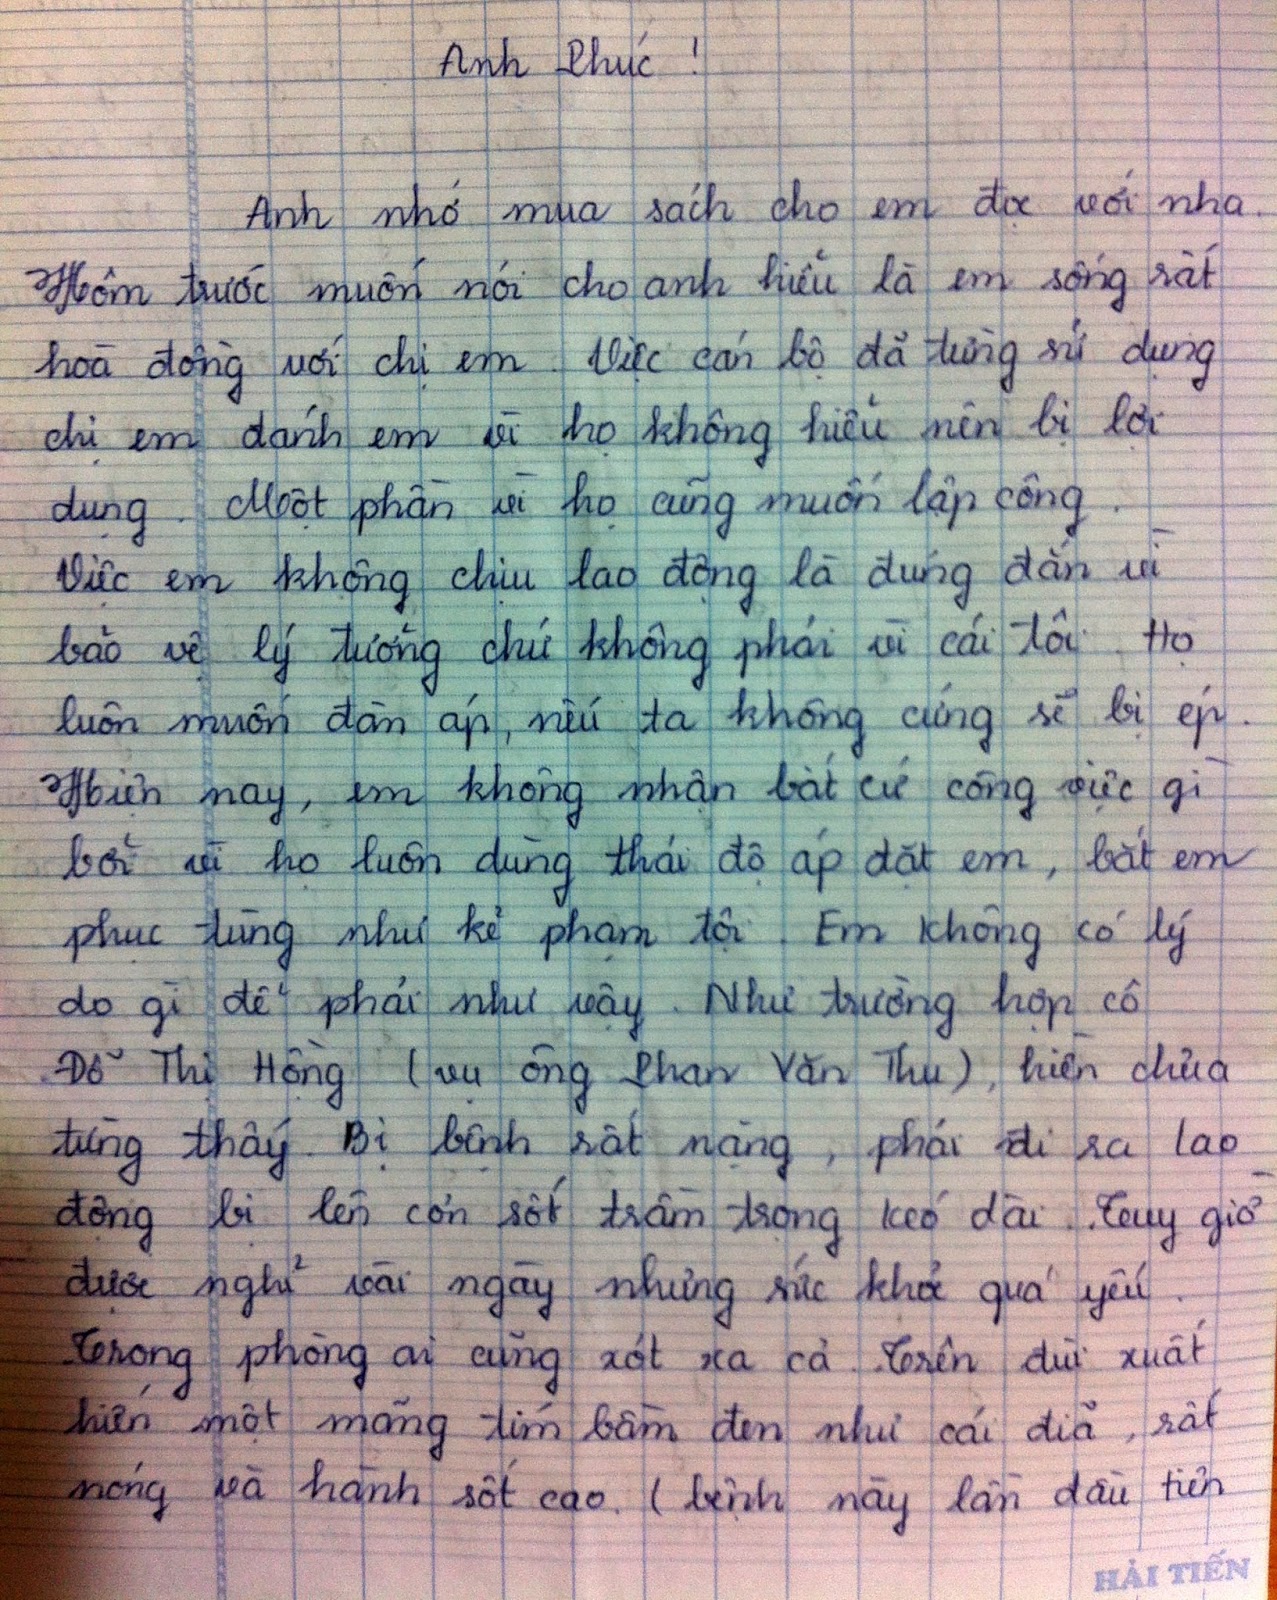 Anh Phúc !
Anh nhớ mua sách cho em đọc với nha.
Hôm trước muốn nói cho anh hiểu là em sống rất
hoà đồng với chị em. Việc cán bộ đã từng sử dụng
chị em đánh em vì họ không hiểu nên bị lợi
dụng. Một phần vì họ cũng muốn lập công.
Việc em không chịu lao động là đúng đắn vì
bảo vệ lý tưởng chứ không phải vì cái tôi. Họ
luôn muốn đàn áp, nếu ta không cứng sẽ bị ép.
Hiện nay, em không nhận bất cứ công việc gì
bởi vì họ luôn dùng thái độ áp đặt em, bắt em
phục tùng như kẻ phạm tội. Em không có lý
do gì để phải như vậy. Như trường hợp cô
Đỗ Thị Hồng (vụ ông Phan Văn Thu), hiền chưa
từng thấy. Bị bệnh rất nặng, phải đi ra lao
động bị lên cơn sốt trầm trọng kéo dài. Tuy giờ
được nghỉ vài ngày nhưng sức khoẻ quá yếu.
Trong phòng ai cũng xót xa cả. Trên đùi xuất
hiện một mảng tím bầm đen như cái dĩa, rất
nóng và hành sốt cao. (bệnh này lần đầu tiên
HẢI TIẾN